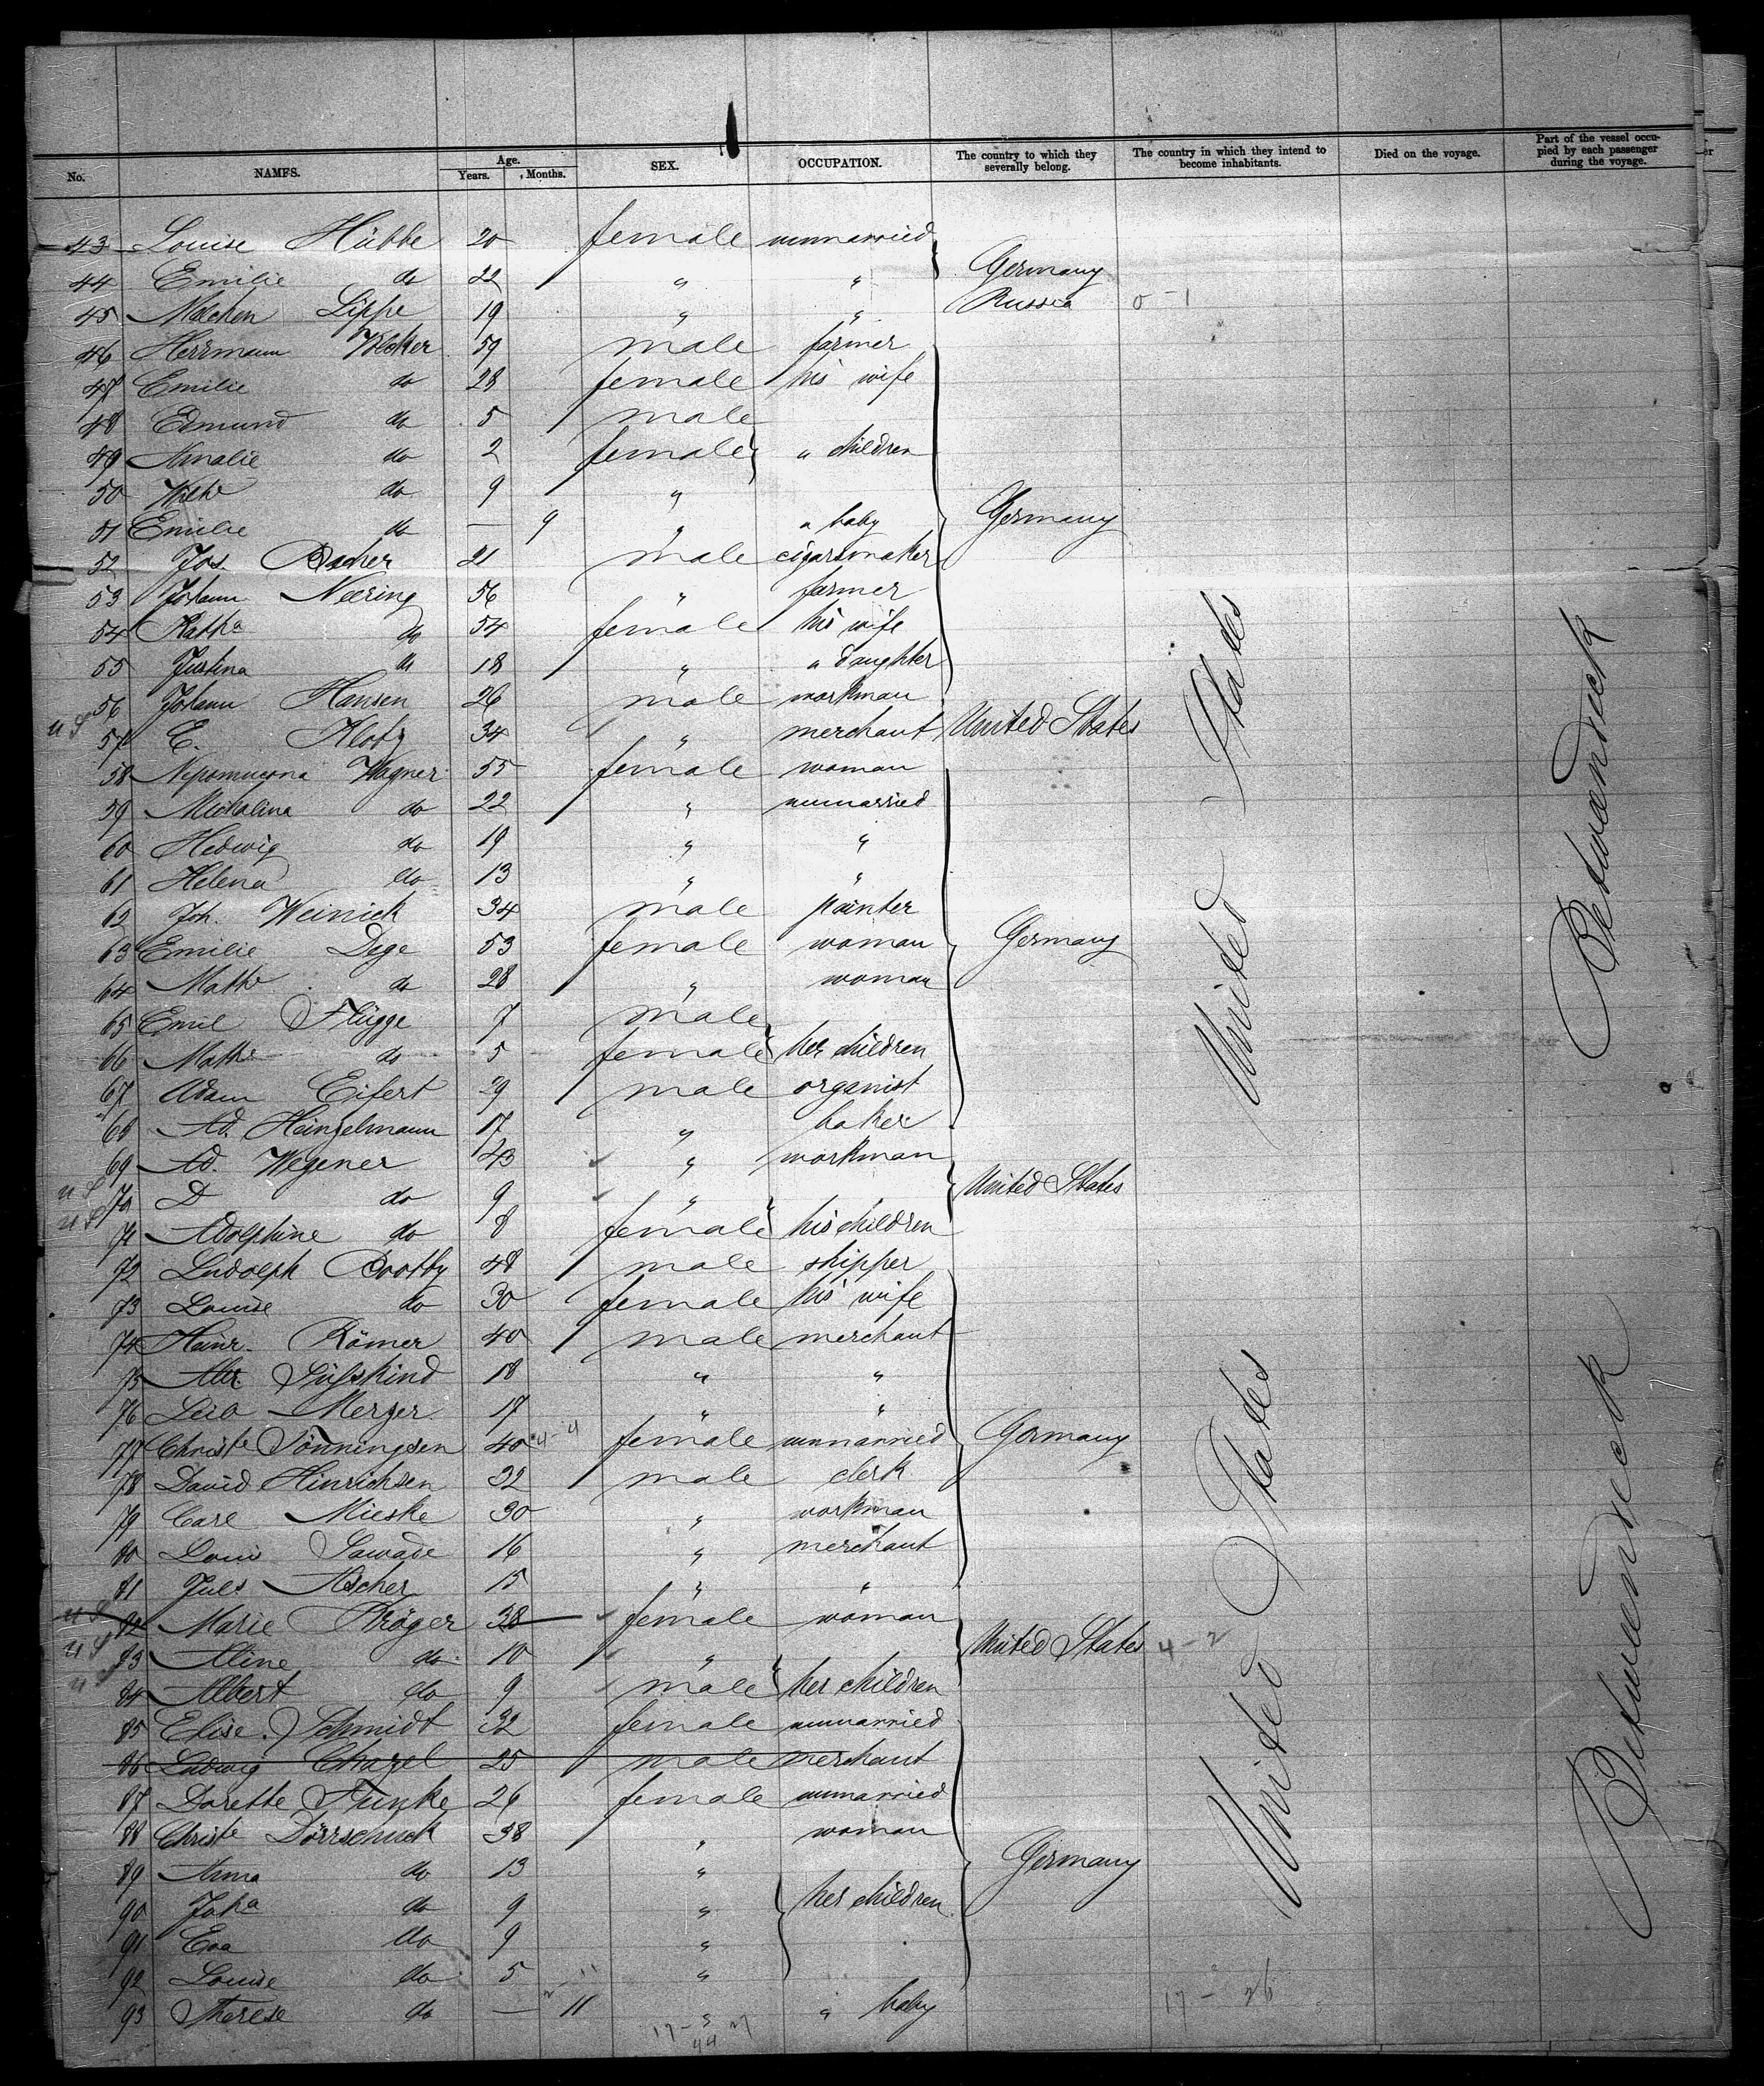 No. NAMES. Age. Years. Months. SEX. OCCUPATION. The country to which they severally belong. The country in which they intend to become inhabitants. Died on the voyage. Part of the vessel occupied by each passenger during the voyage.
43 Louise Hübbe 20 female unmarried
44 Emilie do 22 " " Germany
45 Malchen Lippe 19 " " Russia 0-1
46 Herrmann 59 male farmer
47 Emilie do 28 female his wife
48 Edmund do 5 male
49 Amalie do 2 female " children
50 do 9 "
51 Emilie do — 9 " " baby Germany
52 Jos. 21 male cigarsmaker
53 Johann Neering 56 " farmer
54 Katha do 54 female his wife
55 Justina do 18 " " daughter
56 Johann Hansen 26 male workman
U S 57 E. Klotz 34 " merchant United States
58 Nepomucena Wagner 55 female woman
59 Michalina do 22 " unmarried
60 Hedwig do 19 " "
61 Helena do 13 " "
62 Joh. Weinick 34 male painter
63 Emilie Dege 53 female woman Germany
64 Mathe do 28 " woman
65 Emil Flügge 7 male
66 Mathe do 5 female her children
67 Adam Eifert 29 male organist
68 Ad. Heinzelmann 17 " baker
69 Ad. Wegener 43 " workman
U S 70 D do 9 " United States
U S 71 Adolphine do 8 female his children
72 Ludolph Bootby 48 male shipper
73 Louise do 30 female his wife
74 Heinr. Römer 40 male merchant
75 Alex. Süsskind 18 " "
76 Leib Merzer 17 " "
77 Christe Sönningsen 40 4-4 female unmarried Germany
78 David Hinrichsen 32 male clerk
79 Carl Mieske 30 " workman
80 Louis Sawade 16 " merchant
81 Juls Ascher 15 " "
U S 82 Marie Kröger 38 female woman
U S 83 Aline do 10 " United States 4-2
U S 84 Albert do 9 male her children
85 Elise Schmidt 32 female unmarried
86 Ludwig Chazel 25 male merchant
87 Dorette Funke 26 female unmarried
88 Christe Dörrschuck 38 " woman
89 Anna do 13 " Germany
90 Joha do 9 " her children
91 Eva do 9 "
92 Louise do 5 "
93 Therese do — 11 " " baby 17 - 26
United States
United States
Betwendeck
Betwendeck